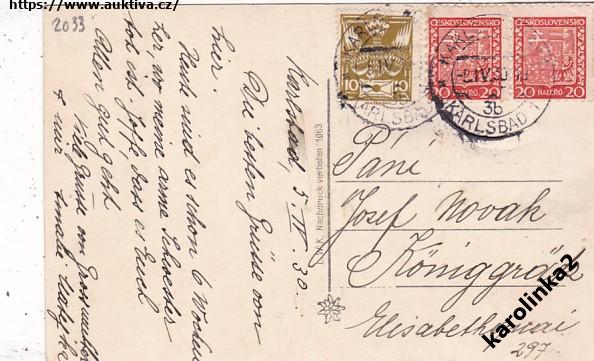 https://www.auktiva.cz/
2033
Karlsbad, 5. IV. 30.
Die besten Grüsse von
hier.
Heute sind es schon 6 Wochen
her, wo meine arme Schwester
tot ist. Hoffe, dass es Euch
Allen gut geht.
Viele Grüsse von
Nachdruck verboten 1063
ČESKOSLOVENSKO
ČESKOSLOVENSKO
10 10
20 HALÉŘŮ 20
20 HALÉŘŮ 20
KARLSBAD
IV. 30
3b
KARLSBAD 1
Páni
Josef Novak
Königgrätz
297.
karolinka2